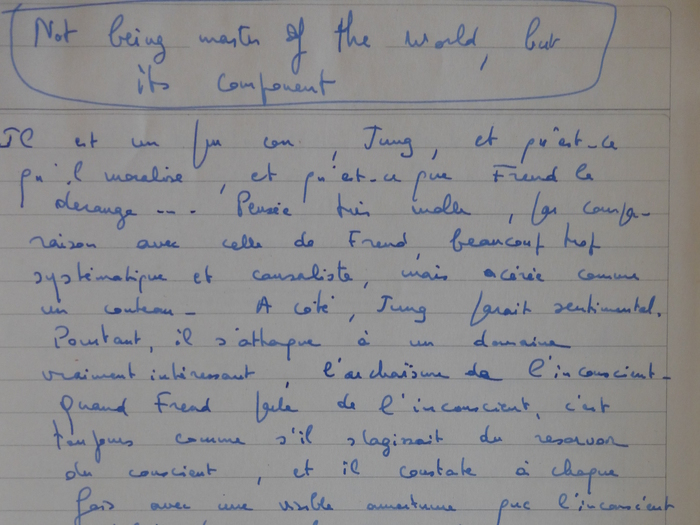 Not being master of the world, but
its component
Il est un peu con, Jung, et qu'est-ce
qu'il moralise, et qu'est-ce que Freud le
dérange --- Pensée très molle, par compa-
raison avec celle de Freud, beaucoup trop
systématique et causaliste, mais acérée comme
un couteau - A côté, Jung paraît sentimental.
Pourtant, il s'attaque à un domaine
vraiment intéressant, l'archaïsme de l'inconscient -
Quand Freud parle de l'inconscient, c'est
toujours comme s'il s'agissait du reservoir
du conscient, et il constate à chaque
fois avec une visible amertume que l'inconscient